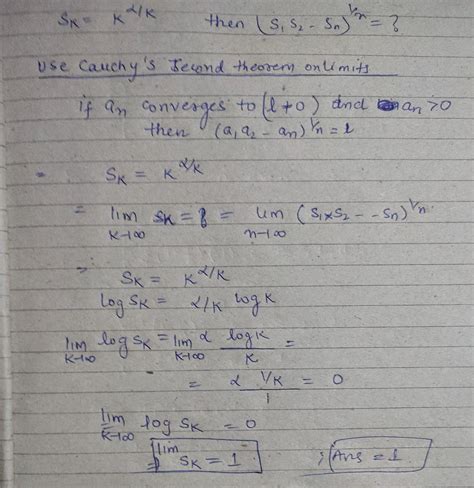 SK = K^α/K then (S1 S2 - Sn)^1/n = ?
Use Cauchy's Second theorem on limits
if an converges to (l≠0) and an >0
then (a1 a2 - an)^1/n = l
SK = K^α/K
= lim K→∞ SK = ? = lim n→∞ (S1 x S2 - - Sn)^1/n
SK = K^α/K
log SK = α/K log K
lim K→∞ log SK = lim K→∞ α log K / K =
= α 1/K / 1 = 0
lim K→∞ log SK = 0
⇒ lim SK = 1 ; Ans = 1